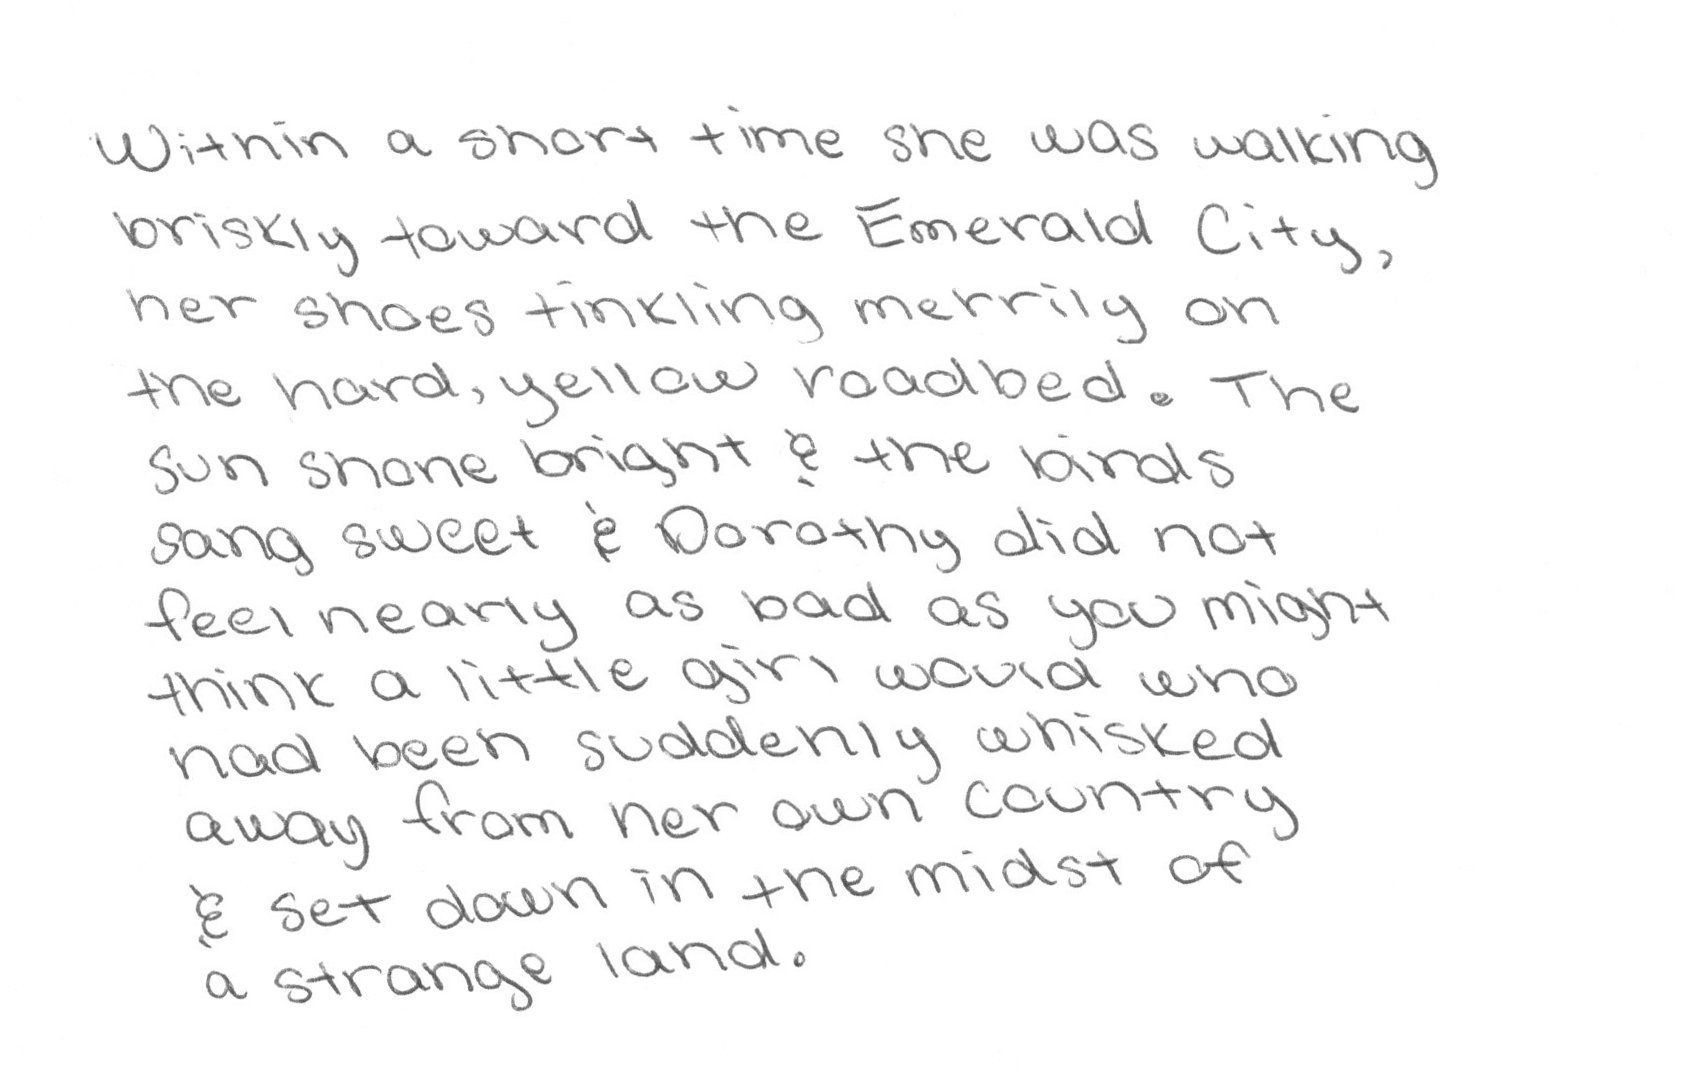 Within a short time she was walking
briskly toward the Emerald City,
her shoes tinkling merrily on
the hard, yellow roadbed. The
sun shone bright & the birds
sang sweet & Dorothy did not
feel nearly as bad as you might
think a little girl would who
had been suddenly whisked
away from her own country
& set down in the midst of
a strange land.